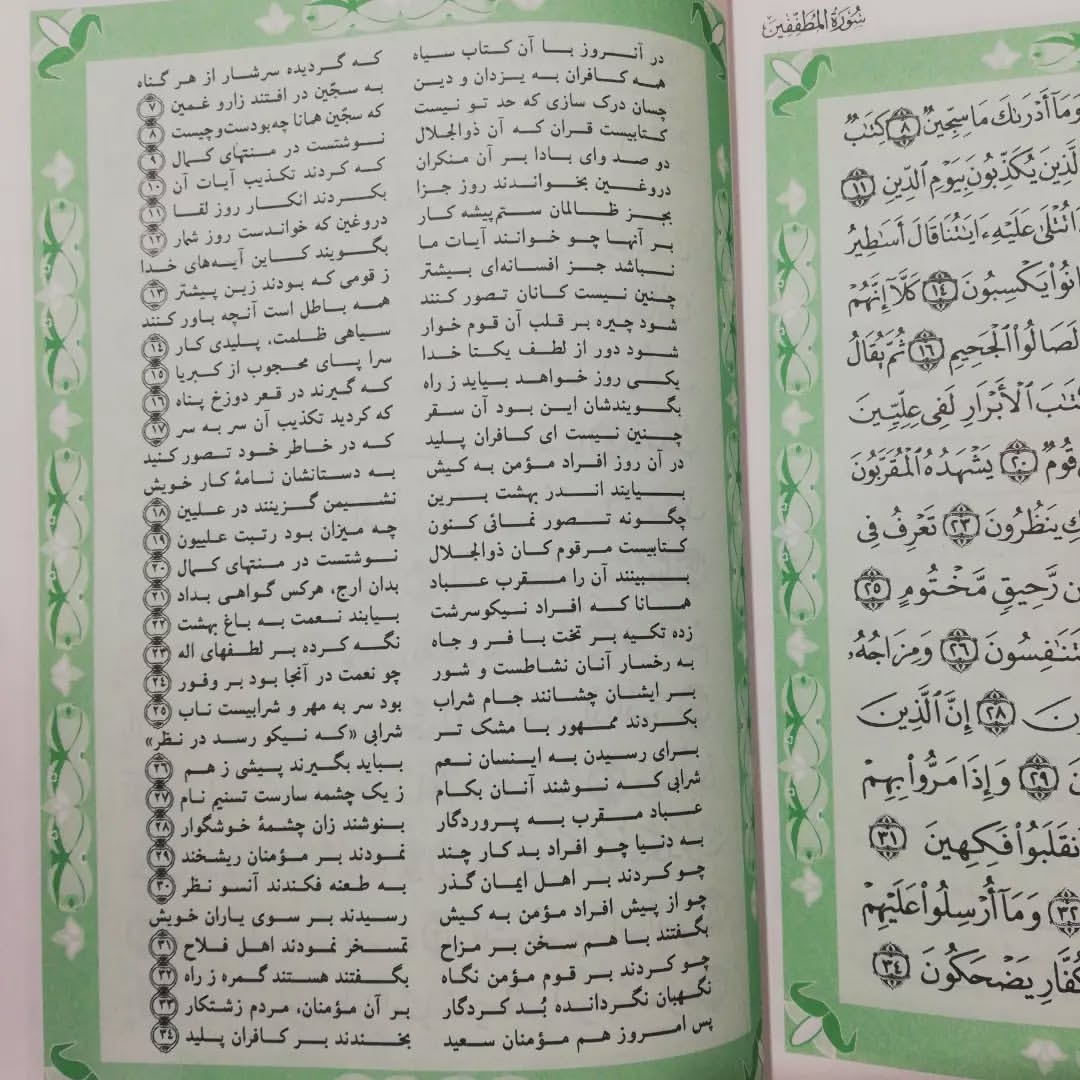 سُورَةُ المُطَفِّفِين
در آنروز با آن کتاب سیاه که گردیده سرشار از هر گناه
همه کافران به یزدان و دین به سجّین در افتند زارو غمین ۷
چسان درک سازی که حد تو نیست که سجّین همانا چه‌بودست‌وچیست ۸
کتابیست قران که آن ذوالجلال نوشتست در منتهای کمال ۹
دو صد وای بادا بر آن منکران که کردند تکذیب آیات آن ۱۰
دروغین بخواندند روز جزا بکردند انکار روز لقا ۱۱
بجز ظالمان ستم‌پیشه کار دروغین که خواندست روز شمار ۱۲
بر آنها چو خوانند آیات ما بگویند کاین آیه‌های خدا
نباشد جز افسانه‌ای بیشتر ز قومی که بودند زین پیشتر ۱۳
چنین نیست کانان تصور کنند همه باطل است آنچه باور کنند
شود چیره بر قلب آن قوم خوار سیاهی ظلمت، پلیدی کار ۱۴
شود دور از لطف یکتا خدا سرا پای محجوب از کبریا ۱۵
یکی روز خواهد بیاید ز راه که گیرند در قعر دوزخ پناه ۱۶
بگویندشان این بود آن سقر که کردید تکذیب آن سر به سر ۱۷
چنین نیست ای کافران پلید که در خاطر خود تصور کنید
در آن روز افراد مؤمن به کیش به دستانشان نامهٔ کار خویش
بیایند اندر بهشت برین نشیمن گزینند در علیین ۱۸
چگونه تصور نمائی کنون چه میزان بود رتبت علییون ۱۹
کتابیست مرقوم کان ذوالجلال نوشتست در منتهای کمال ۲۰
ببینند آن را مقرب عباد بدان ارج، هرکس گواهی بداد ۲۱
همانا که افراد نیکوسرشت بیابند نعمت به باغ بهشت ۲۲
زده تکیه بر تخت با فر و جاه نگه کرده بر لطفهای اله ۲۳
به رخسار آنان نشاطست و شور چو نعمت در آنجا بود بر وفور ۲۴
بر ایشان چشانند جام شراب بود سر به مهر و شرابیست ناب ۲۵
بکردند ممهور با مشک تر شرابی «که نیکو رسد در نظر»
برای رسیدن به اینسان نعم بباید بگیرند پیشی ز هم ۲۶
شرابی که نوشند آنان بکام ز یک چشمه سارست تسنیم نام ۲۷
عباد مقرب به پروردگار بنوشند زان چشمهٔ خوشگوار ۲۸
به دنیا چو افراد بد کار چند نمودند بر مؤمنان ریشخند ۲۹
چو کردند بر اهل ایمان گذر به طعنه فکندند آنسو نظر ۳۰
چو از پیش افراد مؤمن به کیش رسیدند بر سوی یاران خویش
بگفتند با هم سخن بر مزاح تمسخر نمودند اهل فلاح ۳۱
چو کردند بر قوم مؤمن نگاه بگفتند هستند گمره ز راه ۳۲
نگهبان نگردانده بُد کردگار بر آن مؤمنان، مردم زشتکار ۳۳
پس امروز هم مؤمنان سعید بخندند بر کافران پلید ۳۴
وَمَآ أَدْرَىٰكَ مَا سِجِّينٌ ۸ كِتَٰبٌ
ٱلَّذِينَ يُكَذِّبُونَ بِيَوْمِ ٱلدِّينِ ۱۱
تُتْلَىٰ عَلَيْهِ ءَايَٰتُنَا قَالَ أَسَٰطِيرُ
يَكْسِبُونَ ۱۴ كَلَّآ إِنَّهُمْ
لَصَالُوا۟ ٱلْجَحِيمِ ۱۶ ثُمَّ يُقَالُ
ٱلْأَبْرَارِ لَفِى عِلِّيِّينَ
۲۰ يَشْهَدُهُ ٱلْمُقَرَّبُونَ
يَنظُرُونَ ۲۳ تَعْرِفُ فِى
رَّحِيقٍ مَّخْتُومٍ ۲۵
۲۶ وَمِزَاجُهُۥ
۲۸ إِنَّ ٱلَّذِينَ
۲۹ وَإِذَا مَرُّوا۟ بِهِمْ
فَكِهِينَ ۳۱
۳۲ وَمَآ أُرْسِلُوا۟ عَلَيْهِمْ
يَضْحَكُونَ ۳۴